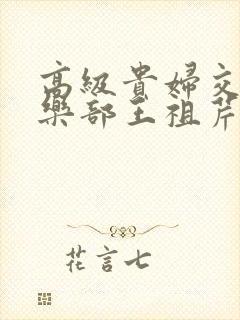 高級貴婦交
樂部王祖芹
花言七